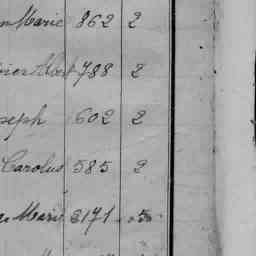 Marie 862 2
788 2
seph 602 2
Carolus 585 2
Marie 2171 05